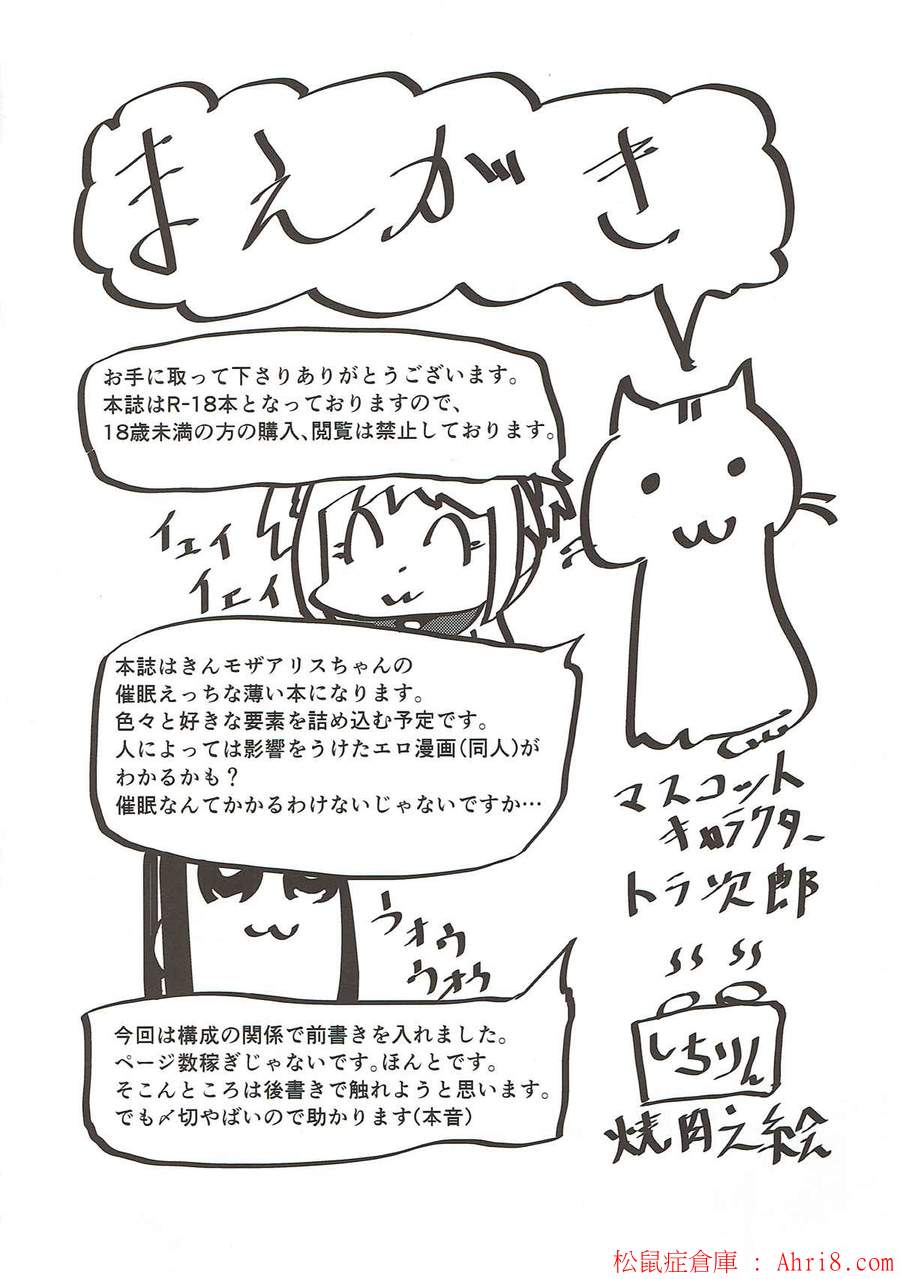 まえがき
お手に取って下さりありがとうございます。
本誌はR-18本となっておりますので、
18歳未満の方の購入、閲覧は禁止しております。
イェイ
イェイ
本誌はきんモザアリスちゃんの
催眠えっちな薄い本になります。
色々と好きな要素を詰め込む予定です。
人によっては影響をうけたエロ漫画(同人)が
わかるかも？
催眠なんてかかるわけないじゃないですか…
マスコット
キャラクター
トラ次郎
ウォウ
ウォウ
今回は構成の関係で前書きを入れました。
ページ数稼ぎじゃないです。ほんとです。
そこんところは後書きで触れようと思います。
でも〆切やばいので助かります(本音)
しちりん
焼肉之絵
松鼠症倉庫 : Ahri8.com